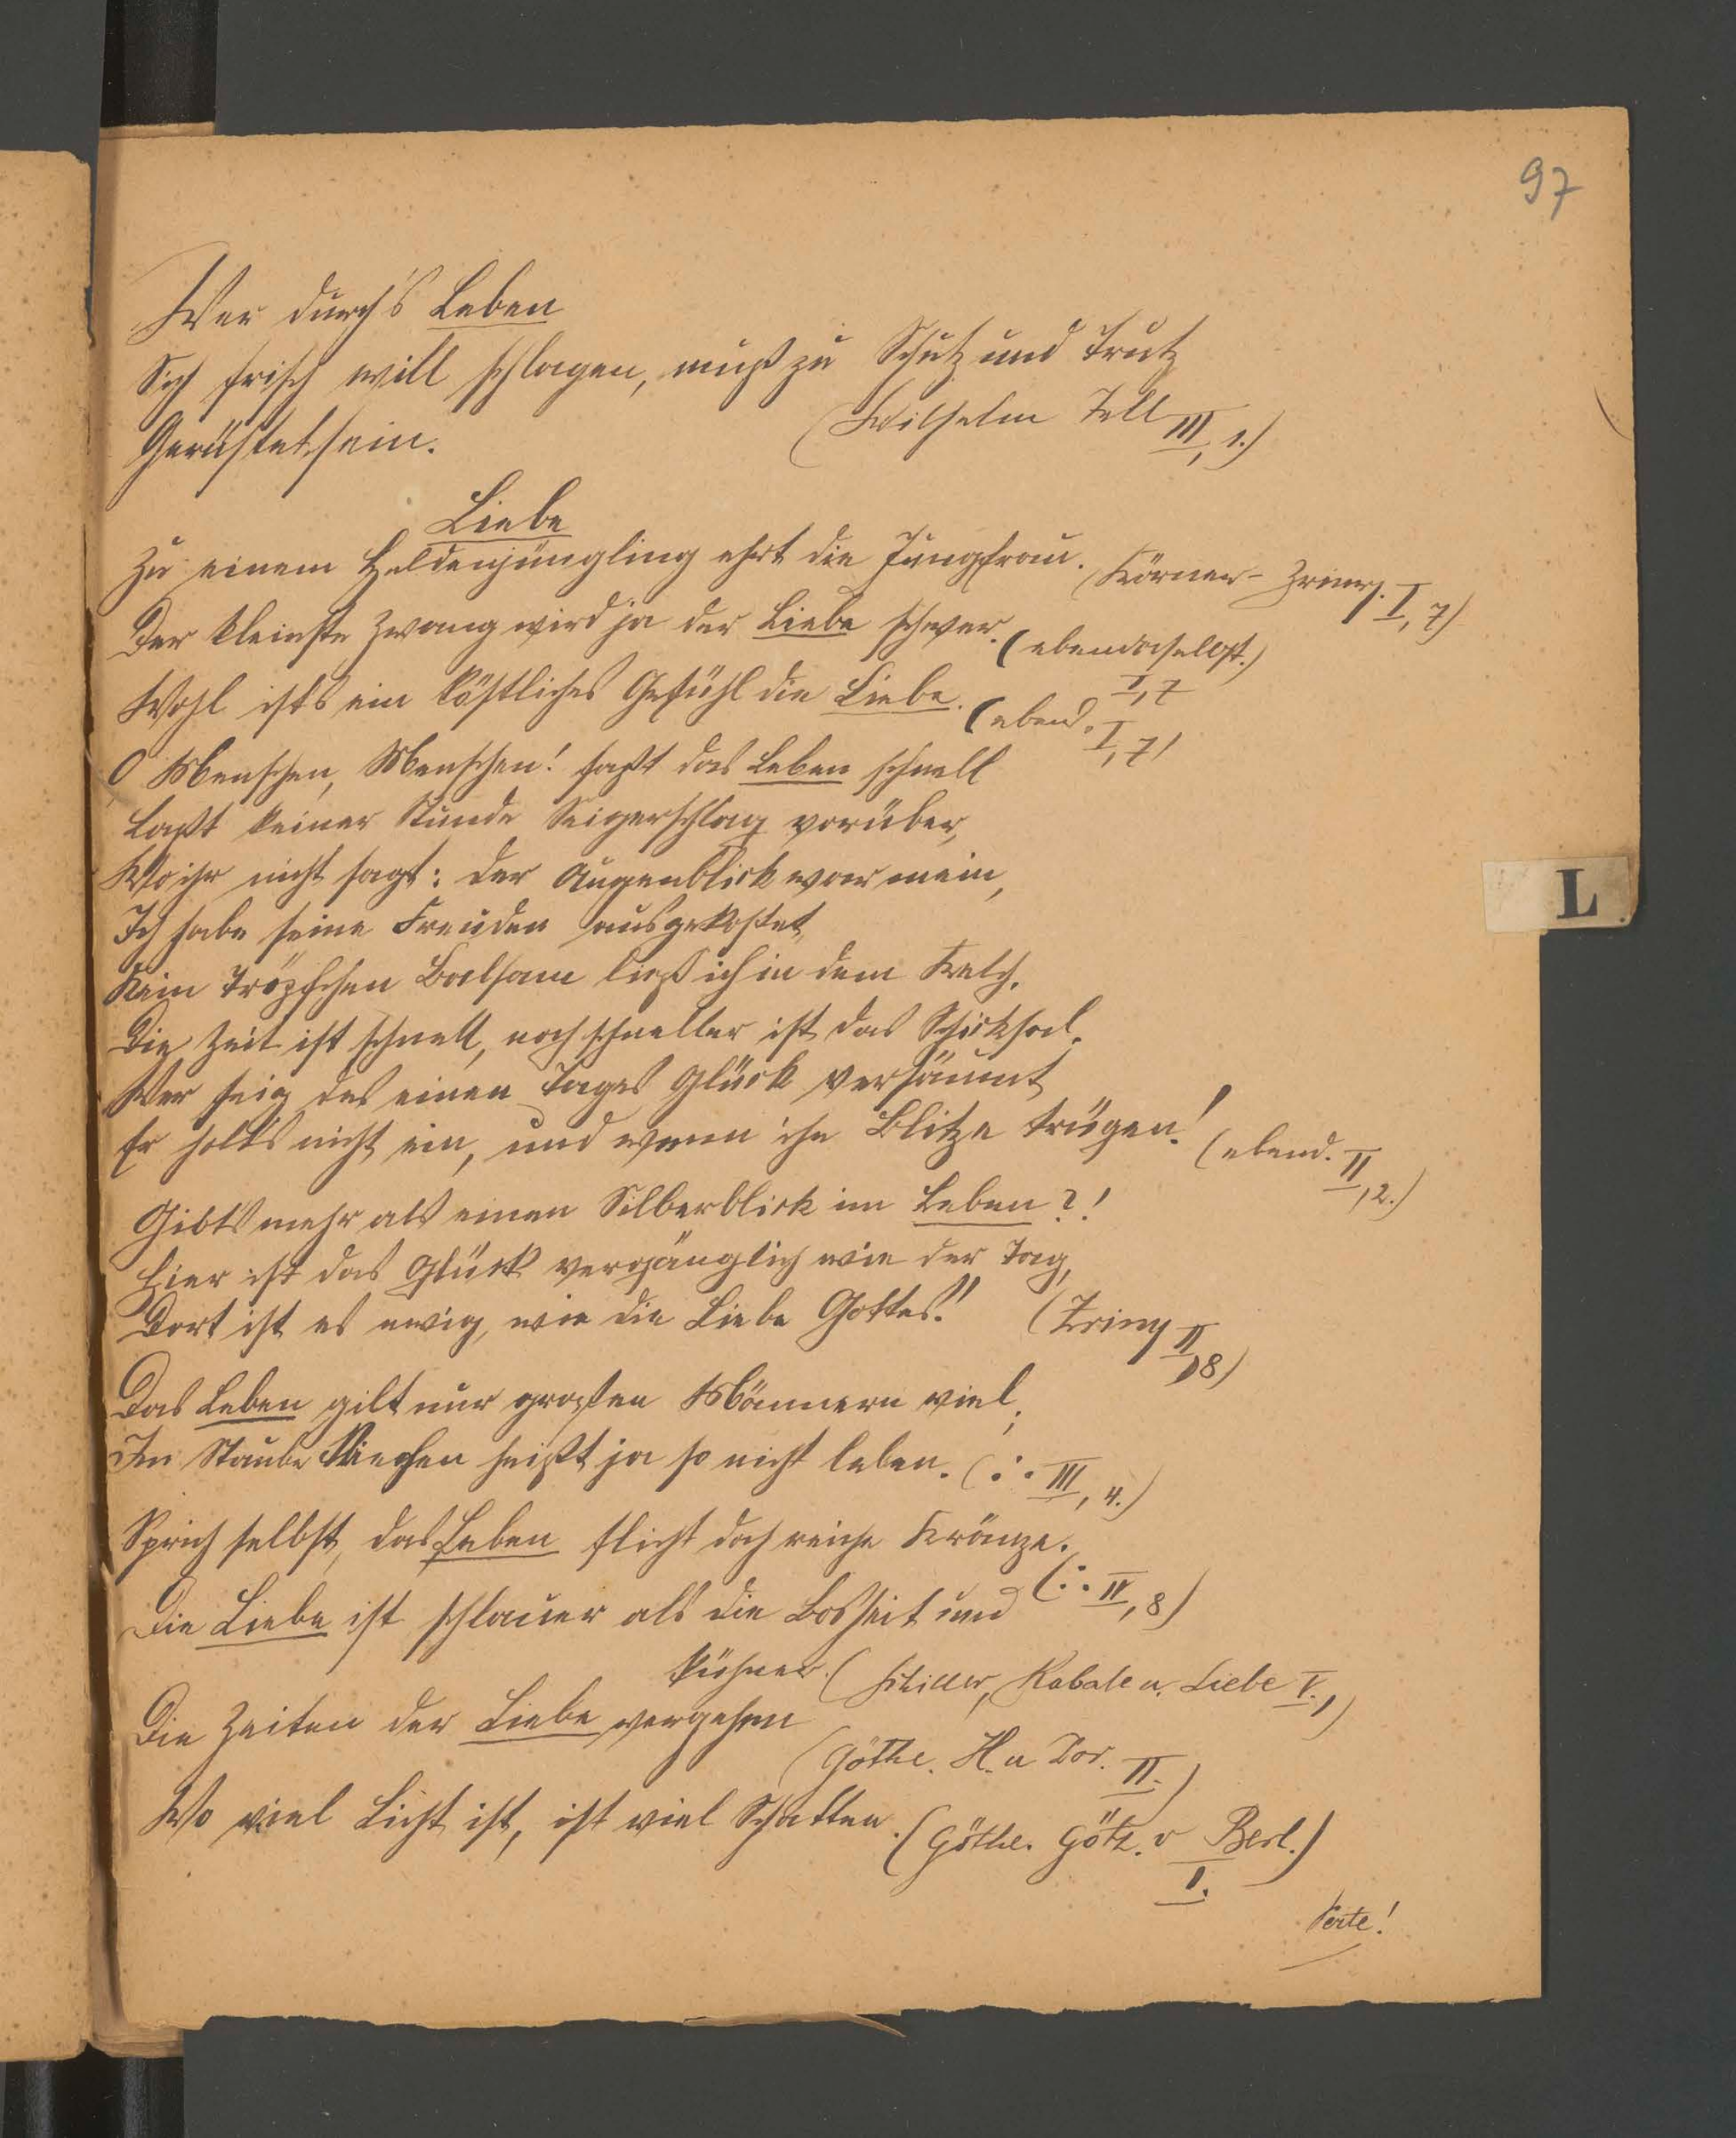 97
Wer durch's Leben
Sich frisch will schlagen, muß zu Schutz und Trutz
Gerüstet sein.
(Wilhelm Tell III, 1.)
Liebe
Zu einem Heldenjüngling ehrt die Jungfrau. (Körner - Zriny. I, 7)
Der kleinste Zwang wird ja der Liebe schwer. (ebendaselbst.) I, 7
Wohl ist's ein köstliches Gefühl die Liebe. (ebend. I, 7)
O Menschen, Menschen! faßt das Leben schnell
Laßt keiner Stunde Seigerschlag vorüber,
Wo ihr nicht sagt: der Augenblick war mein,
Ich habe seine Freuden ausgekostet,
Kein Tröpfchen Balsam ließ ich in dem Kelch.
Die Zeit ist schnell, noch schneller ist das Schicksal.
Wer feig des einen Tages Glück versäumt
Er holt's nicht ein, und wenn ihn Blitze trügen! (ebend. II, 2.)
Gibt's mehr als einen Silberblick im Leben?!
Hier ist das Glück vergänglich wie der Tag,
Dort ist es ewig, wie die Liebe Gottes!! (Zriny II, 8)
Das Leben gilt nur großen Männern viel;
Im Staube kriechen heißt ja so nicht leben. (∴ III, 4.)
Sprich selbst, das Leben flicht doch reiche Kränze.
(∴ IV, 8)
Die Liebe ist schlauer als die Bosheit und
kühner. (Schiller, Kabale u. Liebe V. 1)
Die Zeiten der Liebe vergehen
(Göthe. H. u Dor. II.)
Wo viel Licht ist, ist viel Schatten. (Göthe. Götz. v Berl.)
I.
Verte!
L